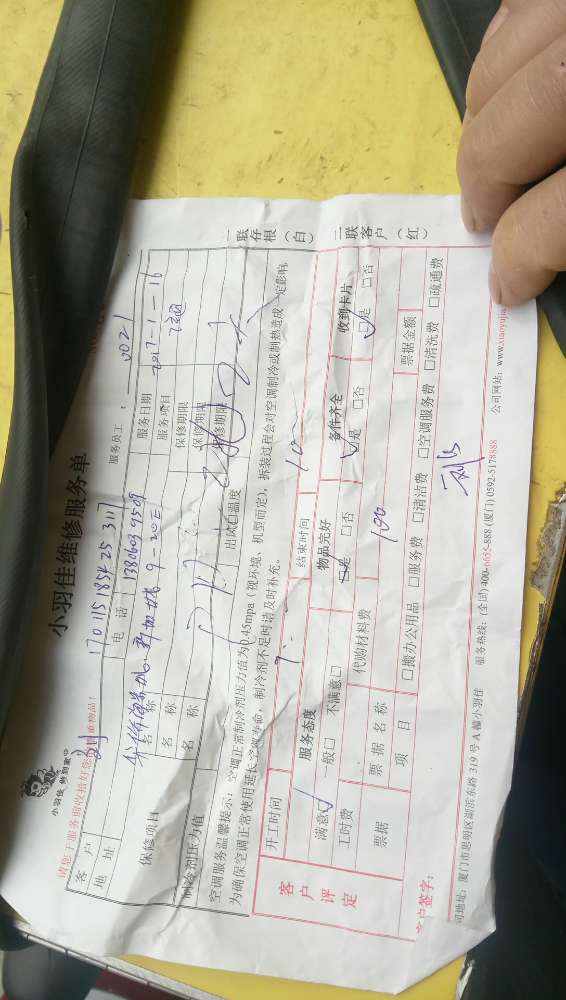 小羽佳 修到家中
小羽佳维修服务单
请您于服务前收拾好您的贵重物品!
170115185425311
服务员工: 0021
客户 刘
电话 13806039509
服务日期 2017-1-16
地址
服务项目
保修项目
名称
保修期限
名称
保修期限
名称
保修期限
制冷剂压力值
出风口温度
空调服务温馨提示: 空调正常制冷剂压力值为0.45mpa(视环境、机型而定), 拆装过程会对空调制冷或制热造成一定影响,
为确保空调正常使用延长空调寿命, 制冷剂不足时请及时补充。
客户评定
开工时间
结束时间
服务态度
物品完好
备件齐全
收到卡片
满意□ 一般□ 不满意□
□是 □否
□是 □否
□是 □否
工时费
代购材料费
190
票据
票据名称
票据金额
项目
□搬办公用品 □服务费 □清洁费 □空调服务费 □清洗费 □疏通费
客户签字:
司地址: 厦门市思明区湖滨东路 319 号 A 幢小羽佳
服务热线: (全国) 400-6655-888 (厦门) 0592-5178888
公司网站: www.xiaoyujia
一联存根(白)
二联客户(红)